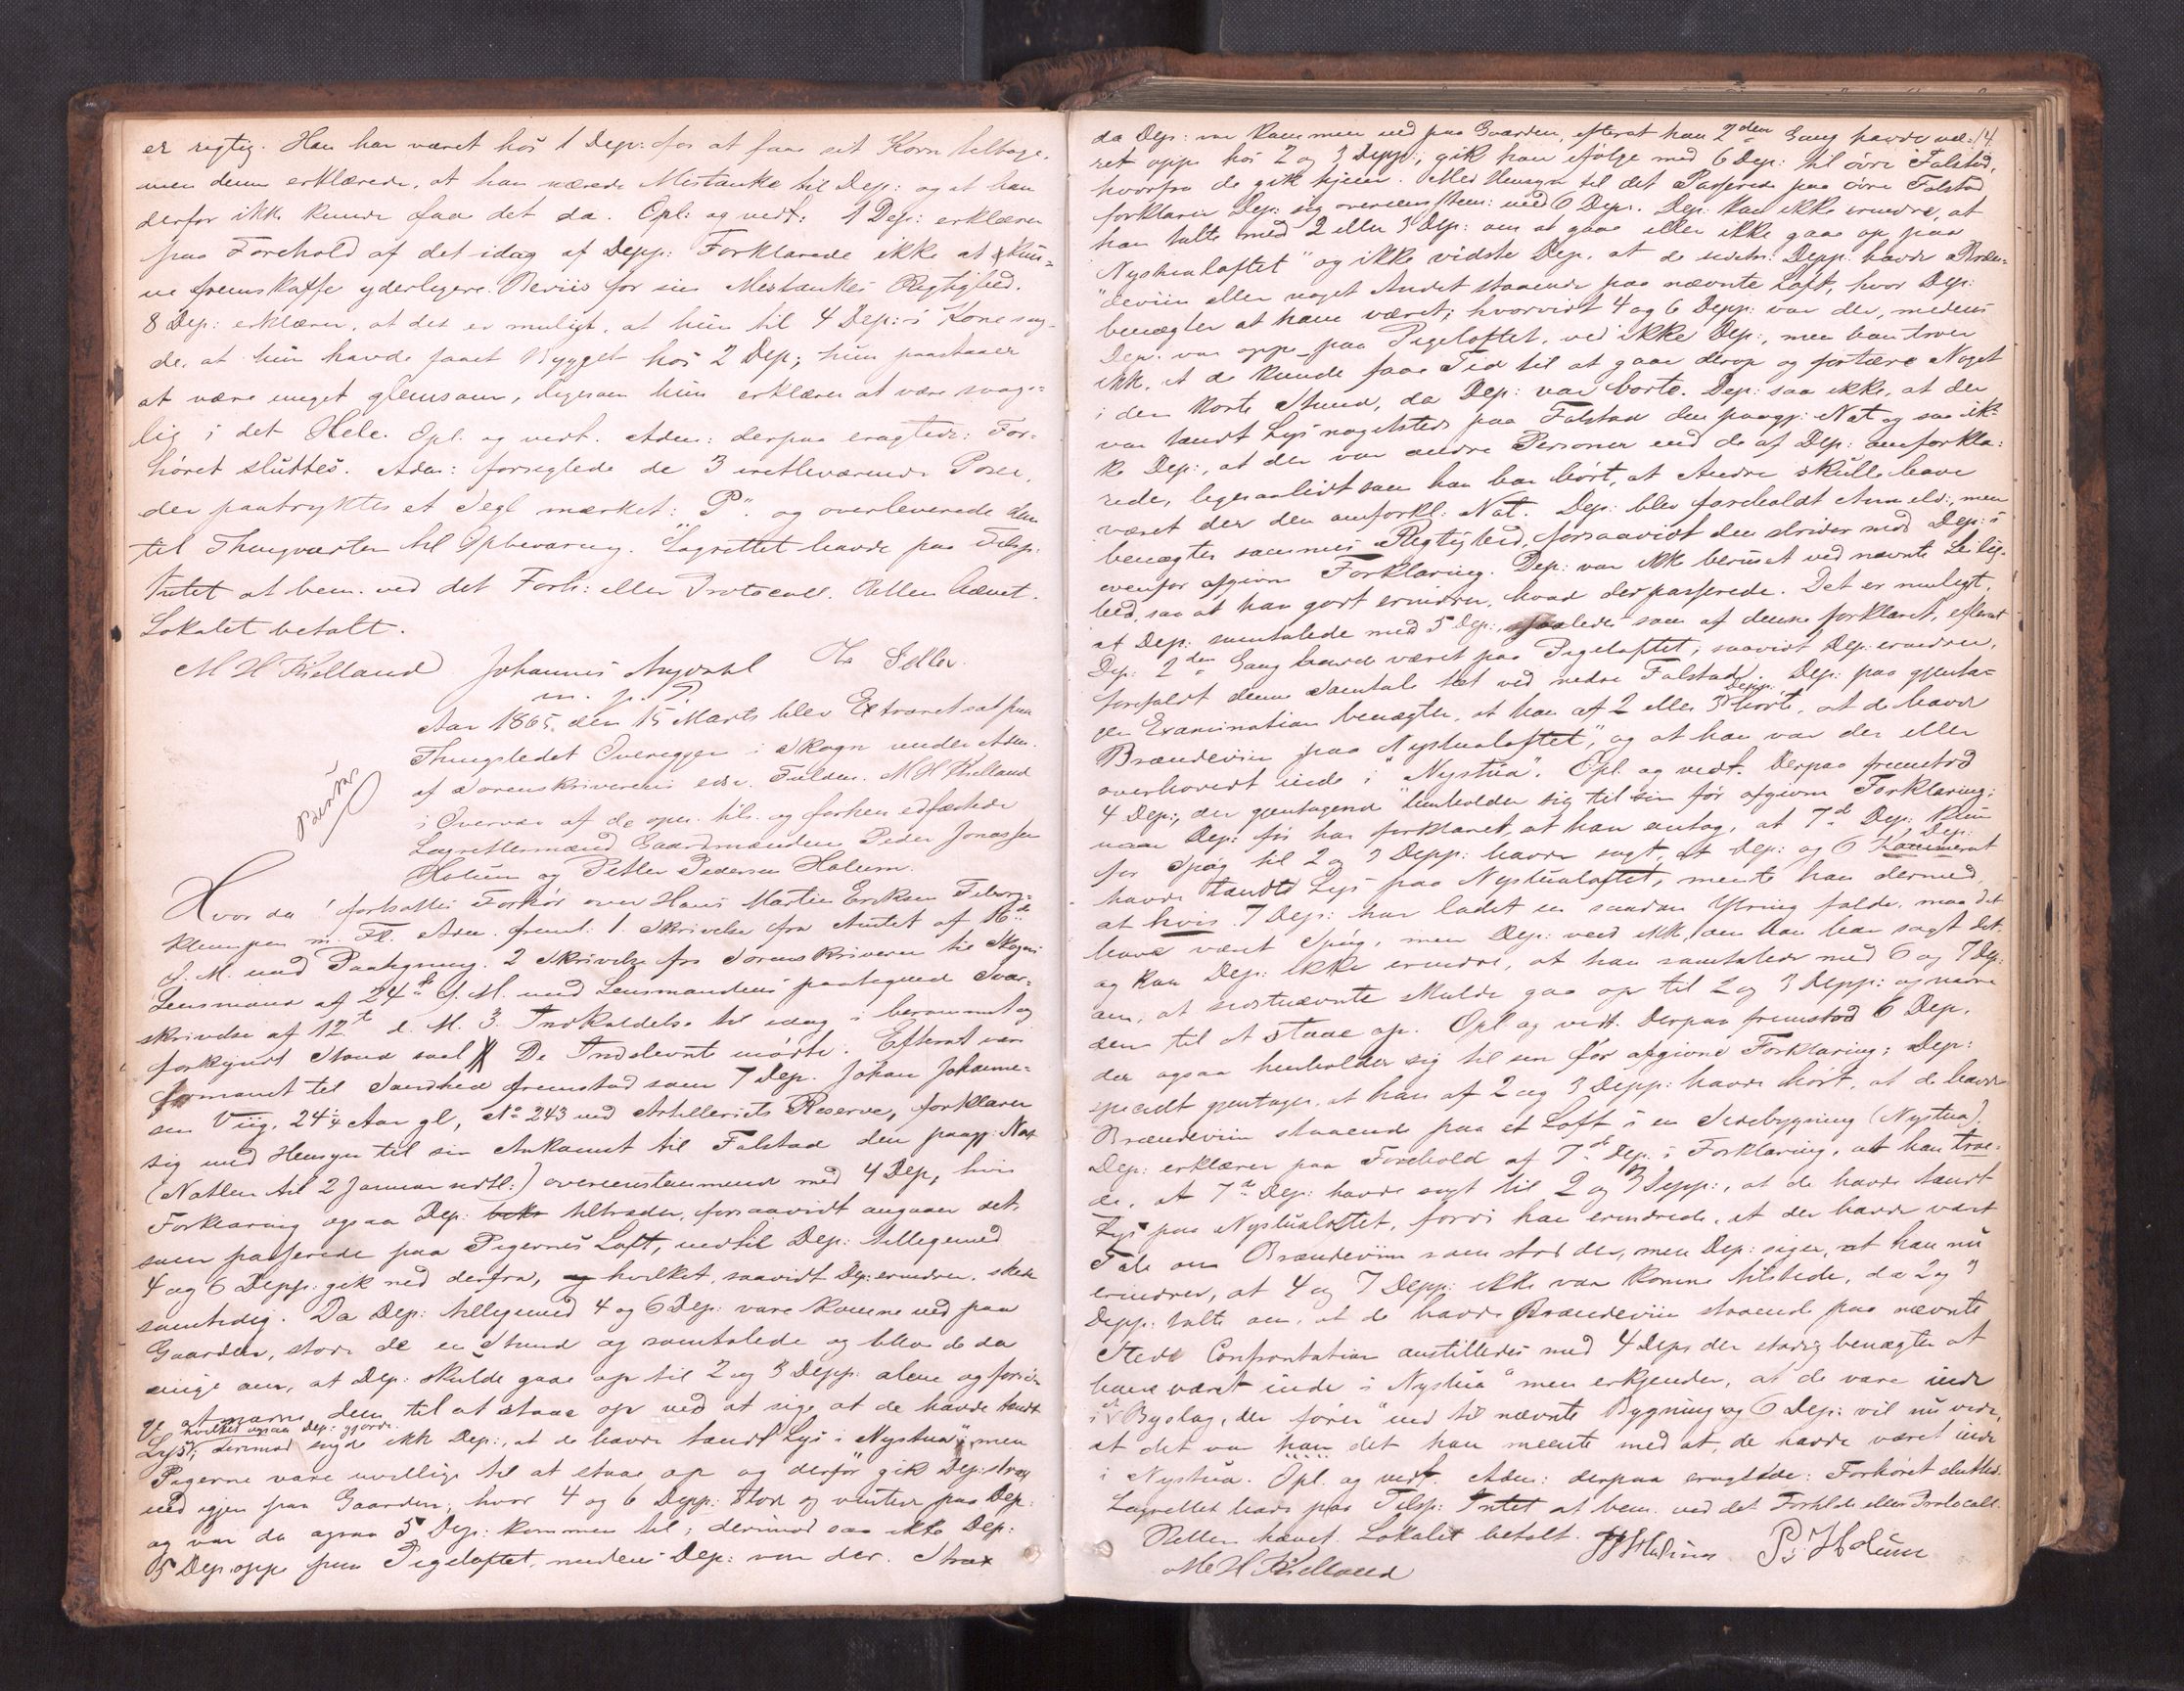 er rigtig. Han har været hos 1 Dep: for at faae sit Korn tilbage,
men denne erklærede, at han nærede Mistanke til Dep: og at han
derfor ikke kunde faae det da. Opl: og vedt: 1 Dep: erklærer
paa Forehold af det idag af Depp: Forklarede ikke at kun=
ne fremskaffe yderligere Beviis for sin Mistankes Rigtighed.
8 Dep: erklærer, at det er muligt, at hun til 4 Dep:s Kone sag=
de, at hun havde faaet Bygget hos 2 Dep; hun paastaaer
at være meget glemsom, ligesom hun erklærer at være svage=
lig i det Hele. Opl. og vedt. Adm: derpaa eragtede: For=
høret sluttes. Adm: forseglede de 3 Poser,
der paatryktes et Segl mærket: "P". og overleverede dem
til Thingvarten til Opbevaring. Lagrettet havde paa Tilsp.
Intet at bem. ved det Forh: eller Protocoll. Retten hævet.
Lokalet betalt.
M H Kielland Johannes Nydahl
m. p. P.
Aar 1865, den 15 Marts blev Extraret sat paa
Thingstedet Overeggen i Skogn under Adm.
af Sorenskriverens edsv. Fuldm. M H Kielland
i Overvær af de opn. tils. og forhen edfæstede
Lagrettesmænd Gaardmændene Peder Jonassen
Holum og Petter Pedersen Holum.
Hvor da: fortsattes Forhør over Hans Martin Eriksen
m. Fl. Adm. freml. 1. Skrivelse fra Amtet af 16de
f. M. med Paategning. 2 Skrivelse fra Sorenskriveren til Skogns
Lensmand af 24de f. M. med Lensmandens paategnede Svar=
skrivelse af 12te d. M. 3. Indkaldelse til idag i berammet og
forkyndt Stand saal De Indstevnte mødte. Efterat være
formanet til Sandhed fremstod som 7 Dep. Johan Johanne=
sen Viig, 24¼ Aar gl, No 243 ved Artilleriets Reserve, forklarer
sig med Hensyn til sin Ankomst til Falstad den paagj: Nat
(Natten til 2 Januar sidstl:) overeensstemmende med 4 Dep, hvis
Forklaring ogsaa Dep: tiltræder, forsaavidt angaaer det,
som passerede paa Pigernes Loft, indtil Dep: tilligemed
4 og 6 Depp: gik ned derfra, hvilket, saavidt Dep: erindrer, skede
samtidig. Da Dep: tilligemed 4 og 6 Dep: vare komne ned paa
Gaarden, stode de en Stund og samtalede og bleve de da
enige om, at Dep: skulde gaae op til 2 og 3 Depp: alene og forsø
ge at narre dem til at staae op ved at sige at de havde tændt
hvilket ogsaa Dep: gjorde.
Lys, derimod sagde ikke Dep:, at de havde tændt Lys i Nystua", men
Pigerne vare uvillige til at staae op og derfor gik Dep: strax
ned igjen paa Gaarden, hvor 4 og 6 Depp: stod og ventede paa Dep:
og var da ogsaa 5 Dep: kommen til; derimod saa ikke Dep:
5 Dep oppe paa Pigeloftet, medens Dep: var der. Strax
14
da Dep: var kommen ned paa Gaarden, efterat han 2den Gang havde væ=
ret oppe hos 2 og 3 Depp:, gik han ifølge med 6 Dep: til øvre Falstad,
hvorfra de gik hjem. Med Hensyn til det Passerede paa øvre Falstad
forklarer Dep: sig overeensstem: med 6 Dep. Dep: kan ikke erindre, at
han talte med 2 eller 3 Dep: om at gaae eller ikke gaae op paa
Nystualoftet" og ikke vidste Dep, at de Depp: havde Bræn=
deviin eller noget Andet staaende paa nævnte Loft, hvor Dep:
benægter at have været; hvorvidt 4 og 6 Depp: var der, medens
Dep. var oppe paa Pigeloftet, ved ikke Dep:, men han troer
ikke, at de kunde faae Tid til at gaae derop og fortære Noget
i den korte Stund, da Dep: var borte. Dep: saa ikke, at der
var tændt Lys nogetsteds paa Falstad den paagj: Nat og saa ik=
ke Dep:, at der var andre Personer end de af Dep: omforkla=
rede, ligesaalidt som han har hørt, at Andre skulle have
været der den omforkl: Nat. Dep: blev foreholdt Anmeld:, men
benægter sammes Rigtighed, forsaavidt den strider mod Dep:s
ovenfor afgivne Forklaring. Dep: var ikke beruset ved nævnte Leilig=
hed, saa at han godt erindrer, hvad der passerede. Det er muligt,
at Dep: samtalede med 5 Dep:, saaledes som af denne forklaret, efterat
Dep: 2den Gang havde været paa Pigeloftet; saavidt Dep: erindrer,
forefaldt denne Samtale tæt ved nedre Falstad. Dep: paa gjenta=
gen Examination benægter, at han af 2 eller 3 Depp: hørte, at de havde
Brændeviin paa "Nystualoftet", og at han var der eller
overhovedet inde i "Nystua". Opl. og vedt. Derpaa fremstod
4 Dep:, der gjentagende henholder sig til sin før afgivne Forklaring;
naar Dep: før har forklaret, at han antog, at 7de Dep: kun
for Spøg til 2 og 3 Depp: havde sagt, at Dep: og 6 Dep:
havde tændt Lys paa Nystualoftet, mente han dermed,
at hvis 7 Dep: har ladet en saadan Ytring falde, maa det
have været Spøg, men Dep: veed ikke, om han har sagt det,
og kan Dep: ikke erindre, at han samtalede med 6 og 7 Dep:
om, at sidstnævnte skulde gaa op til 2 og 3 Depp: og narre
dem til at staae op. Opl og vedt. Derpaa fremstod 6 Dep,
der ogsaa henholder sig til sin før afgivne Forklaring; Dep:
specielt gjentager, at han af 2 og 3 Depp: havde hørt, at de havde
Brændeviin staaende paa et Loft i en Sidebygning (Nystua).
Dep: erklærer paa Forehold af 7de Dep:s Forklaring, at han troe=
de, at 7de Dep: havde sagt til 2 og 3 Depp:, at de havde tændt
Lys paa Nystualoftet, fordi han erindrede, at der havde vært
Tale om Brændeviin som stod der, men Dep: siger, at han nu
erindrer, at 4 og 7 Depp: ikke var komne tilstede, da 2 og 3
Depp: talte om, at de havde Brændeviin staaende paa nævnte
Sted. Confrontation anstilledes med 4 Dep, der stadig benægter at
have været inde i Nystua" men erkjender, at de vare inde
i et Byslag, der fører ind til nævnte Bygning og 6 Dep: vil nu vide,
at det var det han meente med at de havde været inde
i Nystua. Opl. og vedt. Adm: derpaa eragtede: Forhøret sluttes.
Lagrettet havde paa Tilsp: Intet at bem. ved det Forhldte eller Protocoll.
Retten hævet. Lokalet betalt. P. Holum
M H Kielland